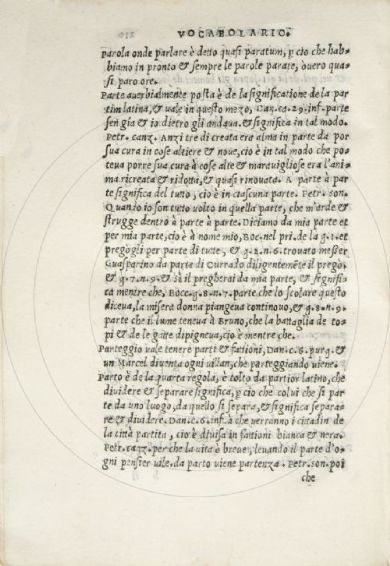 VOCABOLARIO.
parola onde parlare è detto quasi paratum, p cio che hab-
biamo in pronto & sempre le parole parate, overo qua-
si paro ore.
Parte averbialmente posta è de la significatione de la par
tim latina, & vale in questo mezo, Dan.ca.29.inf.parte
sen gia & io dietro gli andava.& significa in tal modo.
Petr. canz. Anzi tre di creata era alma in parte da por
sua cura in cose altiere & nove, cio è in tal modo che po-
teva porre sua cura à cose alte & maravigliose era l'ani-
ma ricreata & ridotta, & quasi rinovata. A parte à par
te significa del tutto, cio è in ciascuna parte. Petr. son.
Quanto io son tutto volto in quella parte, che m'arde &
strugge dentro à parte à parte. Diciamo da mia parte et
per mia parte, cio è à nome mio, Boc.nel pri. de la g.1.et
pregogli per parte di tutte, & g.2.n.6. trovato messer
Guasparino da parte di Currado diligentemēte il pregò.
& g.7.n.9.& si il pregherai da mia parte, & signifi-
ca mentre che, Bocc.g.8.n.7. parte che lo scolare questo
diceva, la misera donna piangeva continovo, & g.8.n.9.
parte che il lume teneva à Bruno, che la battaglia de to-
pi & de le gatte dipigneva, cio è mentre che.
Parteggio vale tenere parti & fattioni, Dan.c.6.purg.&
un Marcel diventa ogni villan, che parteggiando viene.
Parto è de la quarta regola, è tolto da partior latino, che
dividere & separare significa, p cio che colui che si par
te da uno luogo, da quello si separa, & significa separa-
re & dividere.Dan.c.6.inf.à che verranno i citadin de
la città partita, cio è divisa in fattioni bianca & nera.
Petr.canz.perche la vita è breve, levando il parte d'o-
gni pensier vile.da parto viene partenza. Petr.son.poi
che